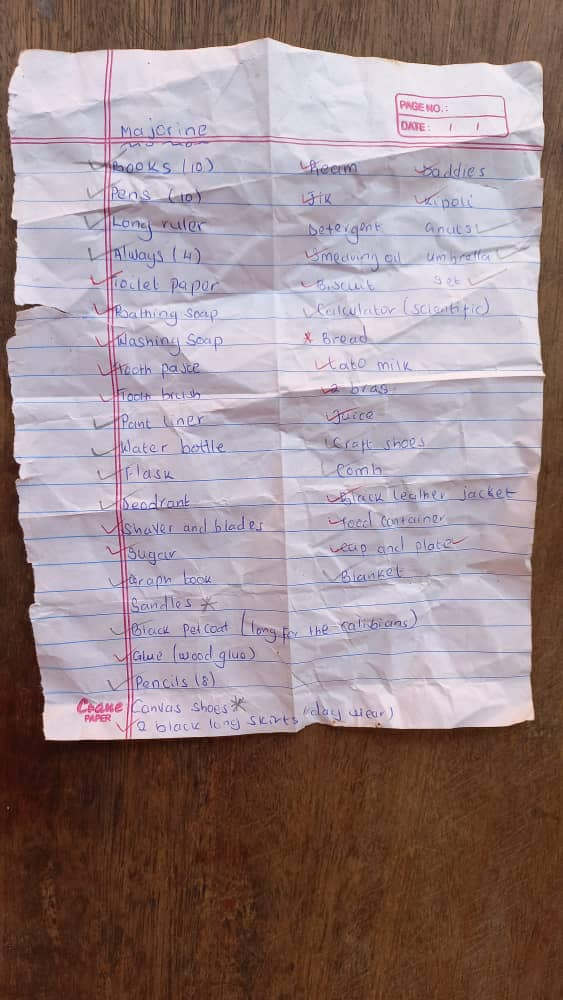 PAGE NO.:
DATE: / /
Majorine
Books (10)
Pens (10)
Long ruler
Always (4)
Toilet paper
Bathing soap
Washing soap
Tooth paste
Tooth brush
Pant liner
Water bottle
Flask
Deodrant
Shaver and blades
Sugar
Graph book
Sandles *
Black petcoat (long for the
Glue (wood glue)
Pencils (8)
Canvas shoes *
2 black long skirts (day wear)
Ream
Jik
Detergent
Smearing oil
Biscuit
Calculator (scientific)
* Bread
Lato milk
2 bras
Juice
Craft shoes
Comb
Black leather jacket
Food container
cup and plate
Blanket
Daddies
Kipoli
anuts
umbrella
Set
Crane
PAPER